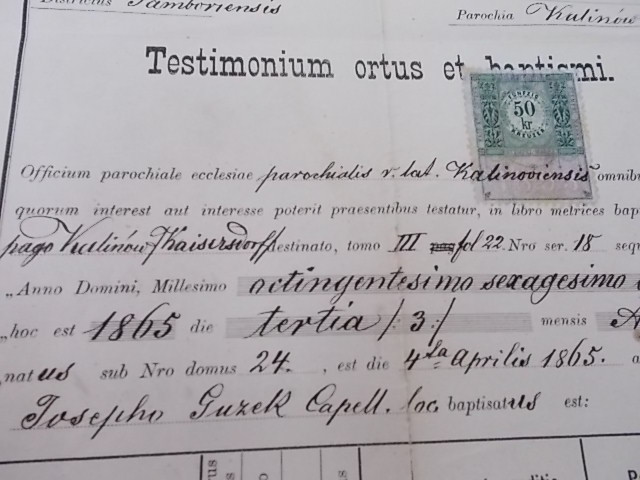 Districtus Samboriensis Parochia Kalinów
Testimonium ortus et baptismi.
50
kr
Officium parochiale ecclesiae parochialis r. lat. Kalinoviensis omnibu
quorum interest aut interesse poterit praesentibus testatur, in libro metrices bap
pago Kalinów/Kaisersdorf destinato, tomo III pag fol 22. Nro ser. 18 sequ
„Anno Domini, Millesimo octingentesimo sexagesimo
„hoc est 1865 die tertia /3:/ mensis A
„natus sub Nro domus 24. , est die 4ta Aprilis 1865. a
Josepho Guzek Capell. loc. baptisatus est: